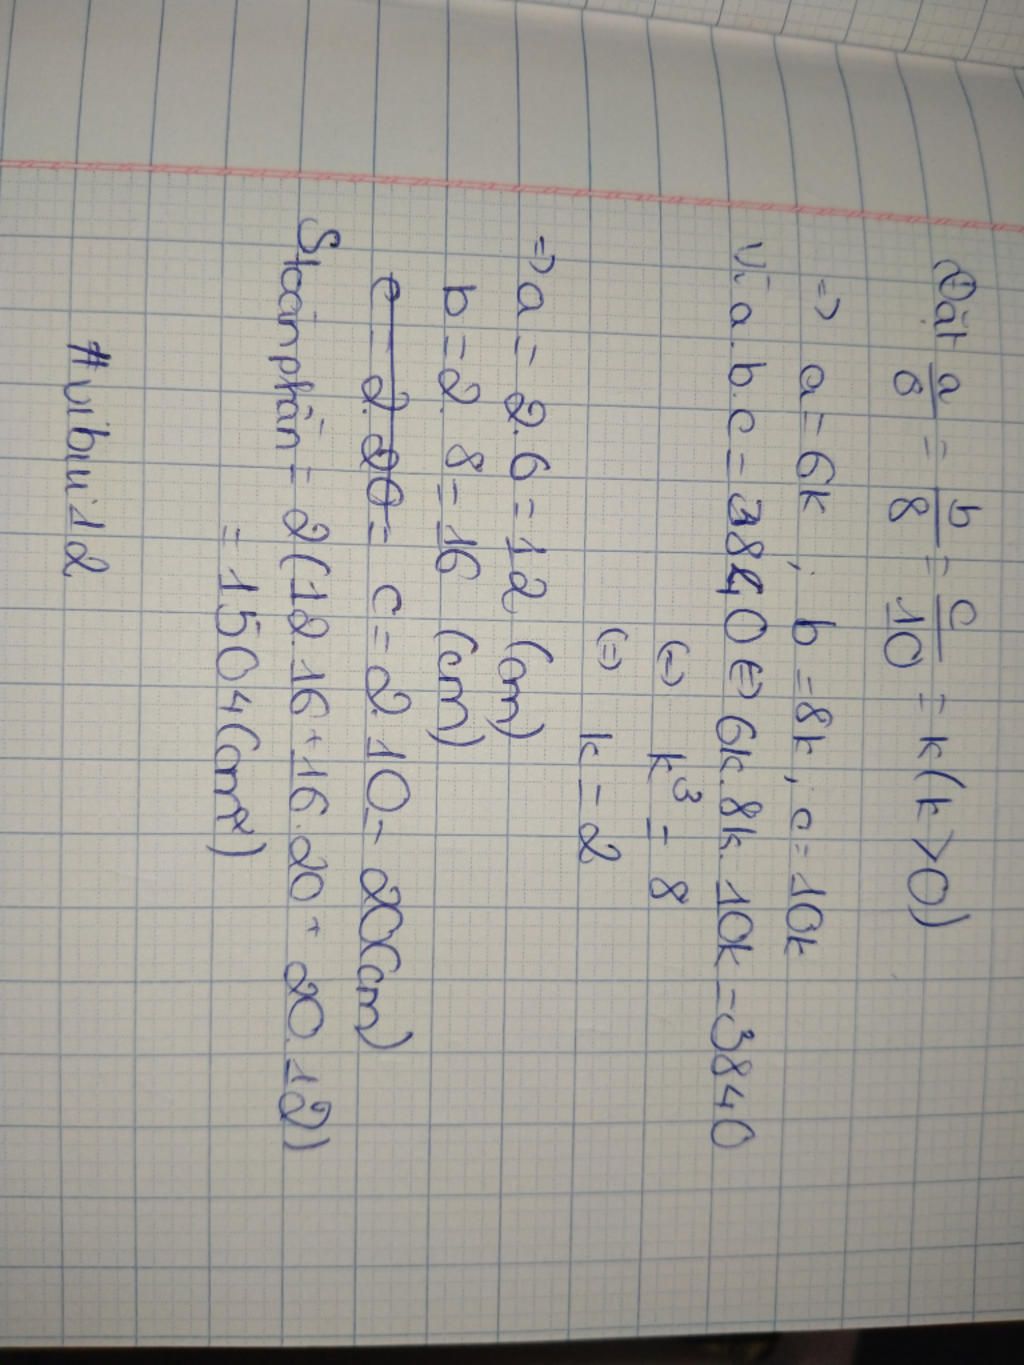 Đặt a/6 = b/8 = c/10 = k (k > 0)
=> a = 6k ; b = 8k ; c = 10k
Vì a.b.c = 3840 <=> 6k.8k.10k = 3840
<=> k³ = 8
<=> k = 2
=> a = 2.6 = 12 (cm)
b = 2.8 = 16 (cm)
c = 2.10 = 20 (cm)
Stoàn phần = 2(12.16 + 16.20 + 20.12)
= 1504 (cm²)
#vibui12